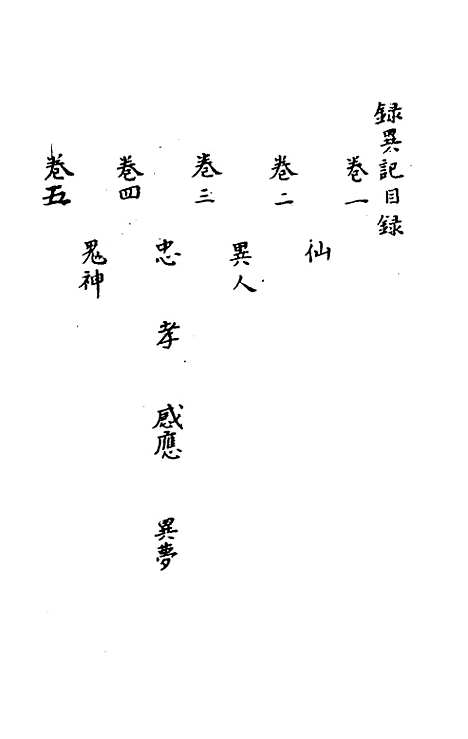 録異記目録
卷一
仙
卷二
異人
卷三
忠 孝 感應 異夢
卷四
鬼神
卷五